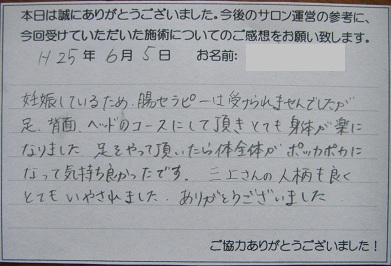 本日は誠にありがとうございました。今後のサロン運営の参考に、
今回受けていただいた施術についてのご感想をお願い致します。
H25年 6月 5日 お名前:
妊娠しているため、腸セラピーは受けられませんでしたが
足、背面、ヘッドのコースにして頂きとても身体が楽に
なりました 足をやって頂いたら体全体が ポッカポカに
なって気持ち良かったです。 三上さんの人柄も良く
とてもいやされました。ありがとうございました
ご協力ありがとうございました!